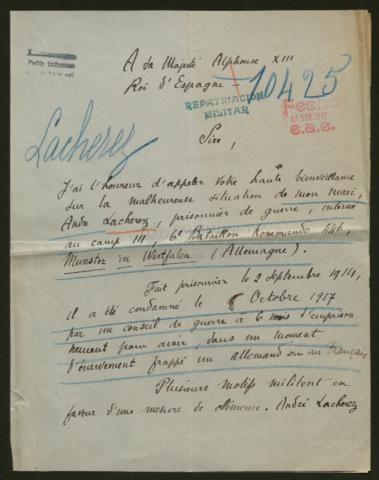 Petit Informe
A Sa Majesté Alphonse XIII
Roi d'Espagne
10425
REPATRIACION
MILITAR
Fecho
1917
e.a.e.
Lacherez
Sire,
J'ai l'honneur d'appeler votre haute bienveillance
sur la malheureuse situation de mon mari,
André Lacherez, prisonnier de guerre, interné
au camp III 6e Bataillon Kommando 446,
Munster en Westfalen (Allemagne).
Fait prisonnier le 2 Septembre 1914,
il a été condamné le Octobre 1917
par un conseil de guerre à 6 mois d'emprison
nement pour avoir dans un moment
d'énervement frappé un allemand ou un Français
Plusieurs motifs militent en
faveur d'une mesure de clémence. André Lacherez